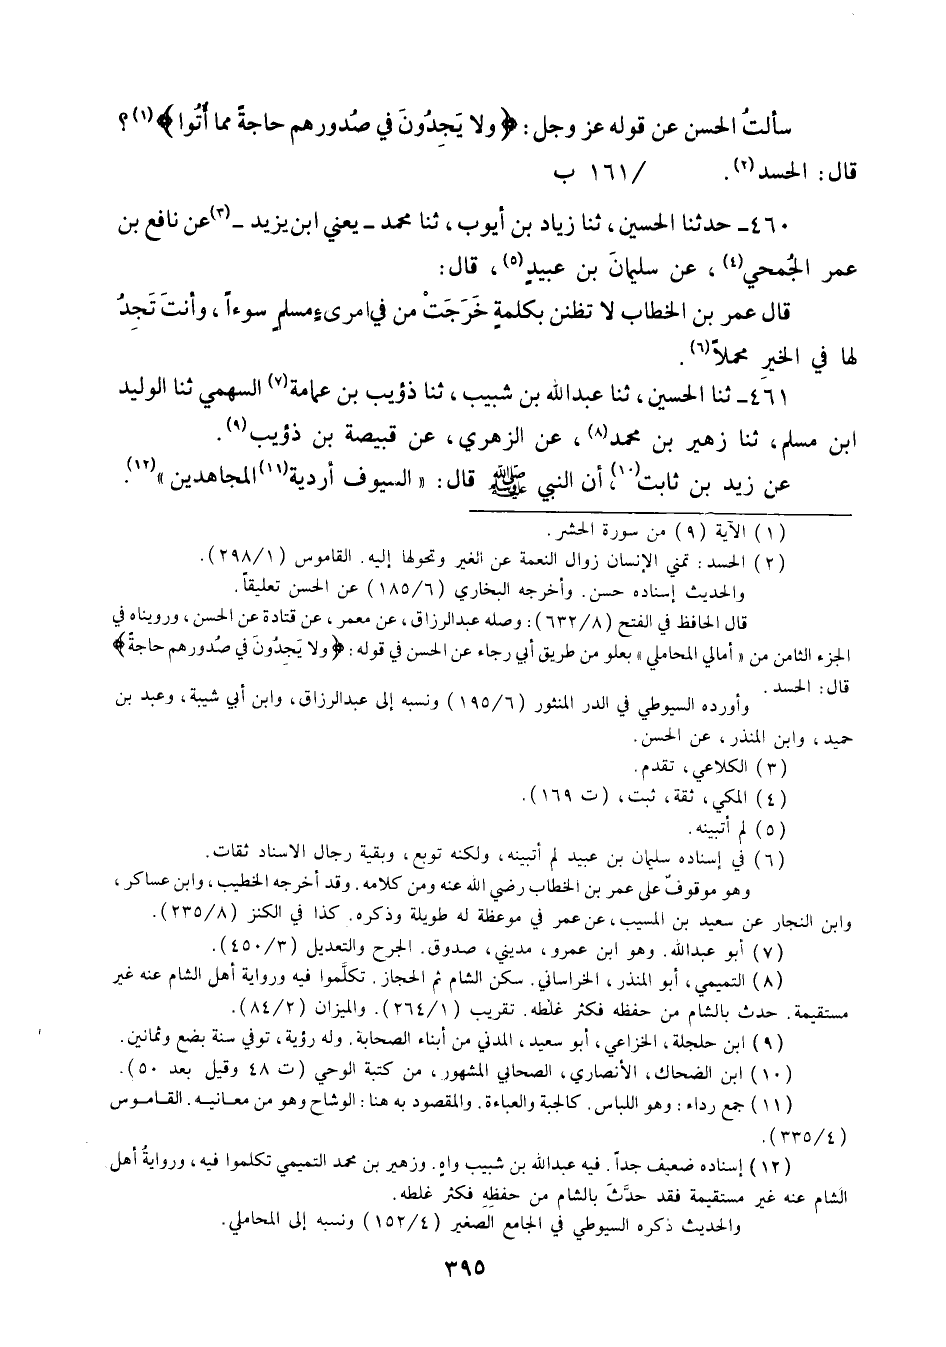 سألتُ الحسن عن قوله عز وجل: ﴿ولا يَجِدُونَ في صُدورهم حاجةً مما أُتُوا﴾(١)؟
قال: الحسد(٢). /١٦١ ب
٤٦٠ـ حدثنا الحسين، ثنا زياد بن أيوب، ثنا محمد ـ يعني ابن يزيد ـ(٣)عن نافع بن
عمر الجُمحي(٤)، عن سليمانَ بن عبيدٍ(٥)، قال:
قال عمر بن الخطاب لا تظنن بكلمةٍ خَرَجَتْ من في امرىءٍ مسلمٍ سوءاً، وأنتَ تَجِدُ
لها في الخيرِ محملاً(٦).
٤٦١ـ ثنا الحسين، ثنا عبدالله بن شبيب، ثنا ذؤيب بن عمامة(٧) السهمي ثنا الوليد
ابن مسلم، ثنا زهير بن محمد(٨)، عن الزهري، عن قبيصة بن ذؤيب(٩).
عن زيد بن ثابت(١٠)، أن النبي ﷺ قال: « السيوف أردية(١١) المجاهدين »(١٢).
(١) الآية (٩) من سورة الحشر.
(٢) الحسد: تمني الإنسان زوال النعمة عن الغير وتحولها إليه. القاموس (٢٩٨/١).
والحديث إسناده حسن. وأخرجه البخاري (١٨٥/٦) عن الحسن تعليقاً.
قال الحافظ في الفتح (٦٣٢/٨): وصله عبدالرزاق، عن معمر، عن قتادة عن الحسن، ورويناه في
الجزء الثامن من « أمالي المحاملي » بعلو من طريق أبي رجاء عن الحسن في قوله: ﴿ولا يَجِدُونَ في صدورهم حاجةً﴾
قال: الحسد.
وأورده السيوطي في الدر المنثور (١٩٥/٦) ونسبه إلى عبدالرزاق، وابن أبي شيبة، وعبد بن
حميد، وابن المنذر، عن الحسن.
(٣) الكلاعي، تقدم.
(٤) المكي، ثقة، ثبت، (ت ١٦٩).
(٥) لم أتبينه.
(٦) في إسناده سليمان بن عبيد لم أتبينه، ولكنه توبع، وبقية رجال الاسناد ثقات.
وهو موقوف على عمر بن الخطاب رضي الله عنه ومن كلامه. وقد أخرجه الخطيب، وابن عساكر،
وابن النجار عن سعيد بن المسيب، عن عمر في موعظة له طويلة وذكره. كذا في الكنز (٢٣٥/٨).
(٧) أبو عبدالله. وهو ابن عمرو، مديني، صدوق. الجرح والتعديل (٤٥٠/٣).
(٨) التميمي، أبو المنذر، الخراساني. سكن الشام ثم الحجاز. تكلَّموا فيه ورواية أهل الشام عنه غير
مستقيمة. حدث بالشام من حفظه فكثر غلطه. تقريب (٢٦٤/١). والميزان (٨٤/٢).
(٩) ابن حلحلة، الخزاعي، أبو سعيد، المدني من أبناء الصحابة. وله رؤية، توفي سنة بضع وثمانين.
(١٠) ابن الضحاك، الأنصاري، الصحابي المشهور، من كتبة الوحي (ت ٤٨ وقيل بعد ٥٠).
(١١) جمع رداء: وهو اللباس. كالجبة والعباءة. والمقصود به هنا: الوشاح وهو من معانيه. القاموس
(٣٣٥/٤).
(١٢) إسناده ضعيف جداً. فيه عبدالله بن شبيب واهٍ. وزهير بن محمد التميمي تكلموا فيه، وروايةُ أهل
الشام عنه غير مستقيمة فقد حدَّثَ بالشام من حفظِهِ فكثر غلطه.
والحديث ذكره السيوطي في الجامع الصغير (١٥٢/٤) ونسبه إلى المحاملي.
٣٩٥